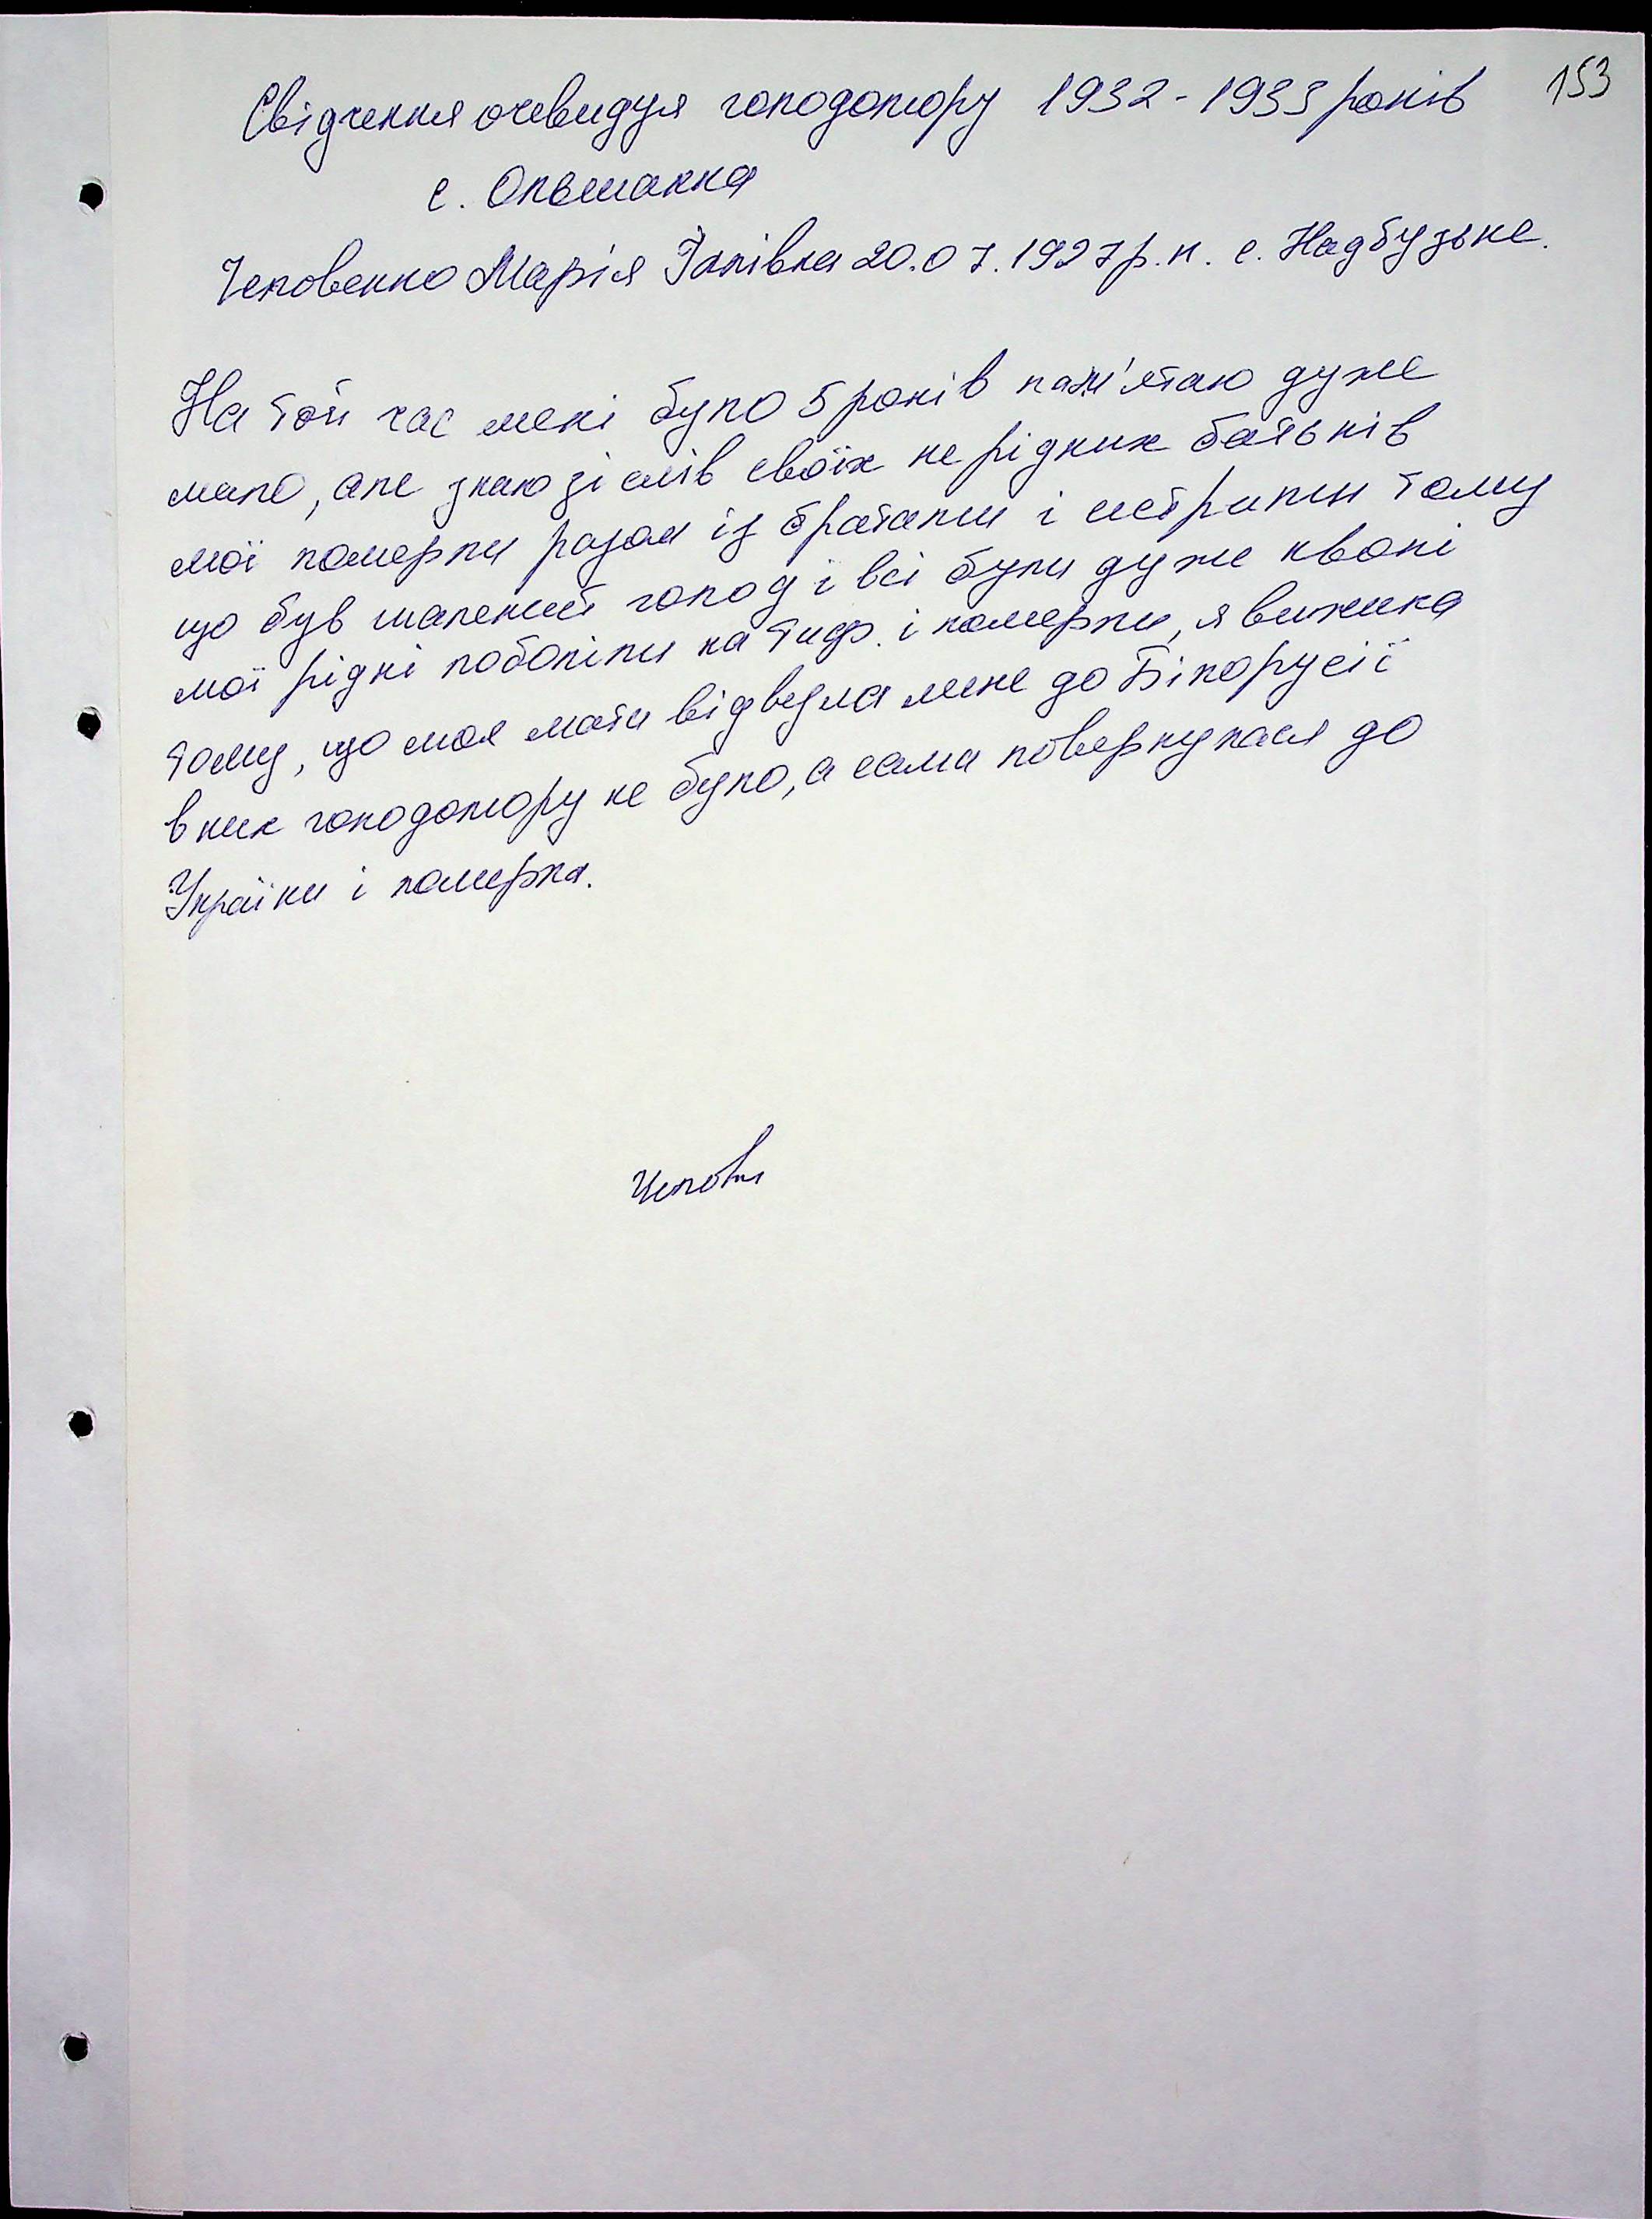 153
Свідчення очевидця голодомору 1932-1933 років
с. Ольшанка
Чеповенко Марія Ілківна 20.07.1927р.н. с. Надбузьке.
На той час мені було 5 років пам'ятаю дуже
мало, але знаю зі слів своїх не рідних батьків
мої померли разом із братами і сестрами тому
що був шалений голод і всі були дуже кволі
мої рідні поболіли на тиф. і померли, я вижила
тому, що моя мати відвезла мене до Білорусії
в них голодомору не було, а сама повернулася до
України і померла.